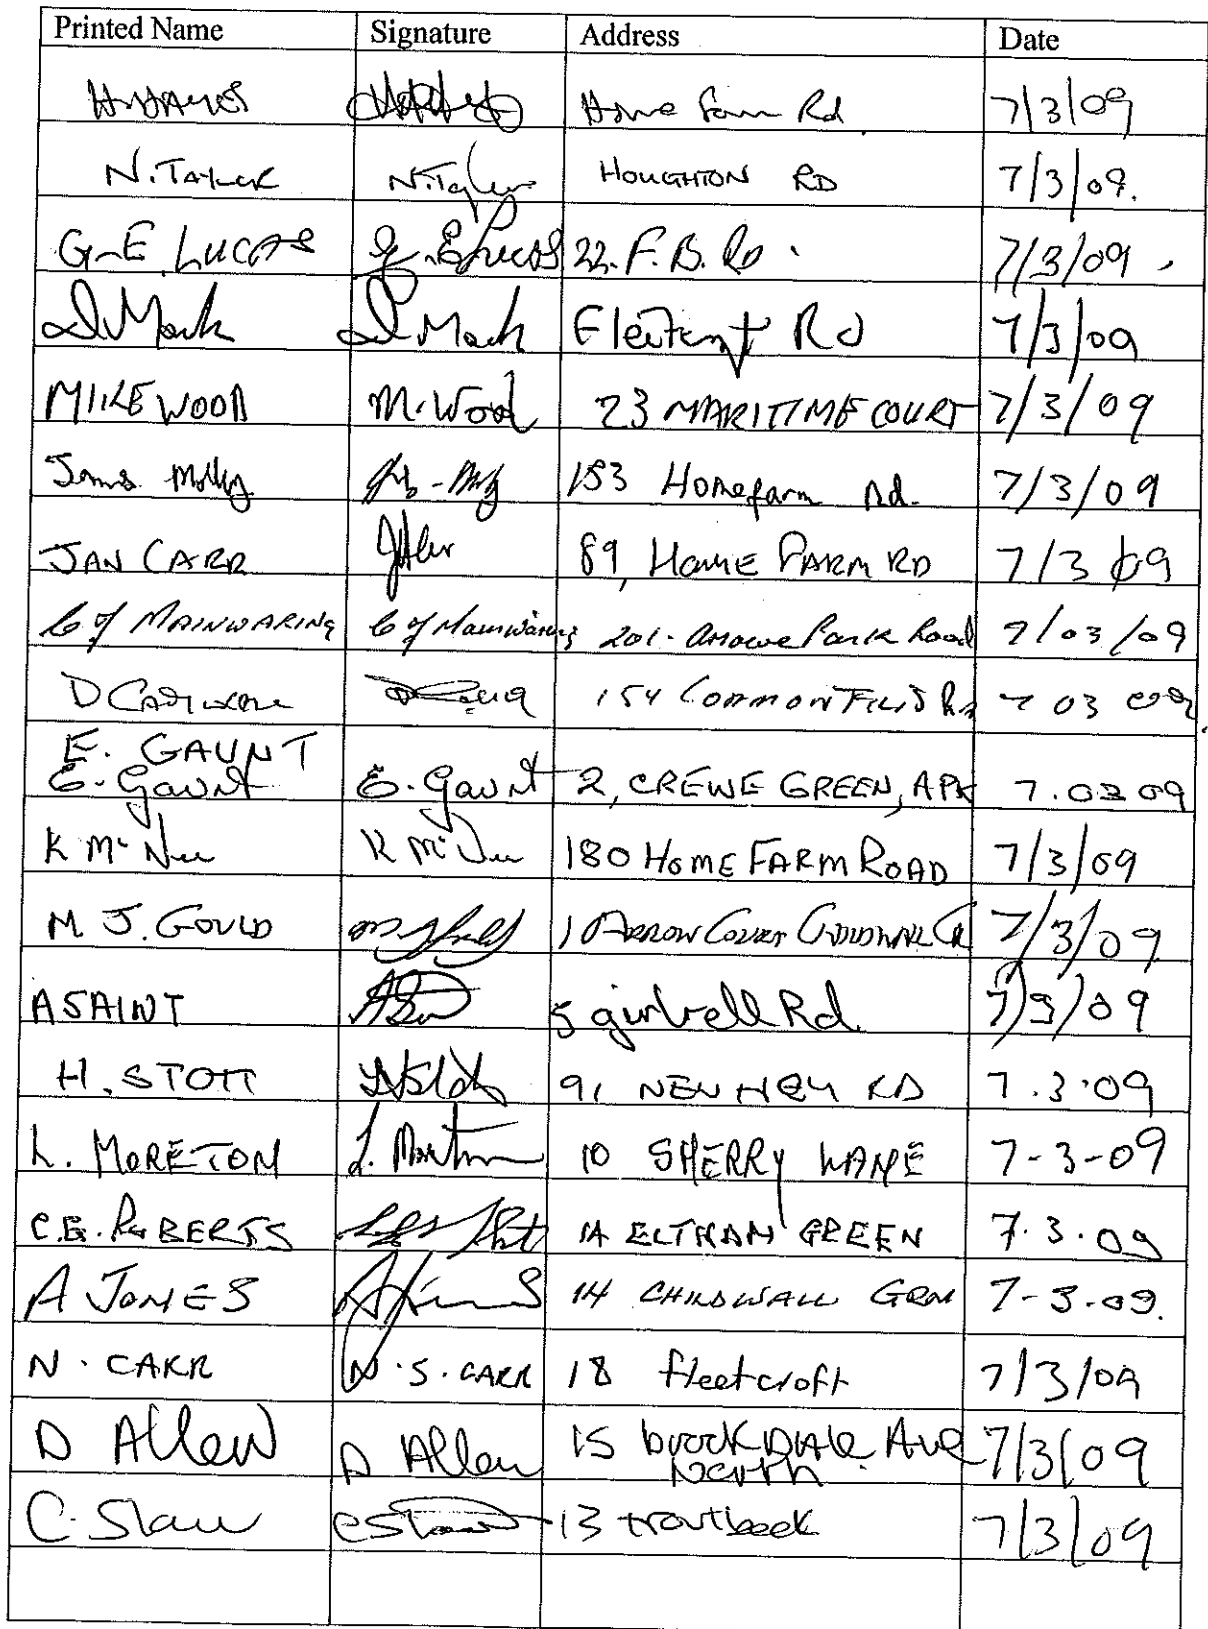 Printed Name Signature Address Date
Home Farm Rd 7/3/09
N. TAYLOR N. Taylor HOUGHTON RD 7/3/09.
G-E. LUCAS G. E Lucas 22. F. B. Rd. 7/3/09.
D Mark D Mark Rd 7/3/09
MIKE WOOD M. Wood 23 MARITIME COURT 7/3/09
James 153 Homefarm Rd. 7/3/09
JAN CARR 89, HOME FARM RD 7/3/09
MAINWARING Mainwaring 201. Arrowe Park Road 7/03/09
D 154 COMMON FIELD Rd 7 03 09
E. GAUNT
E. Gaunt E. Gaunt 2, CREWE GREEN, APK 7.03 09
K Mc Nee K Mc Nee 180 HOME FARM ROAD 7/3/09
M J. GOULD 1 ARROW COURT 7/3/09
A SAINT 5 girtrell Rd. 7/3/09
H. STOTT 91 NEW HEY RD 7.3.09
L. MORETON L. Moreton 10 SHERRY LANE 7-3-09
C.E. ROBERTS 1A ELTHAM GREEN 7.3.09
A JONES A Jones 14 CHILDWALL GRN 7-3-09.
N. CARR N. S. CARR 18 fleetcroft 7/3/09
D Allen D Allen 15 brookDale Ave 7/3/09
North
C. Shaw C Shaw 13 troutbeck 7/3/09